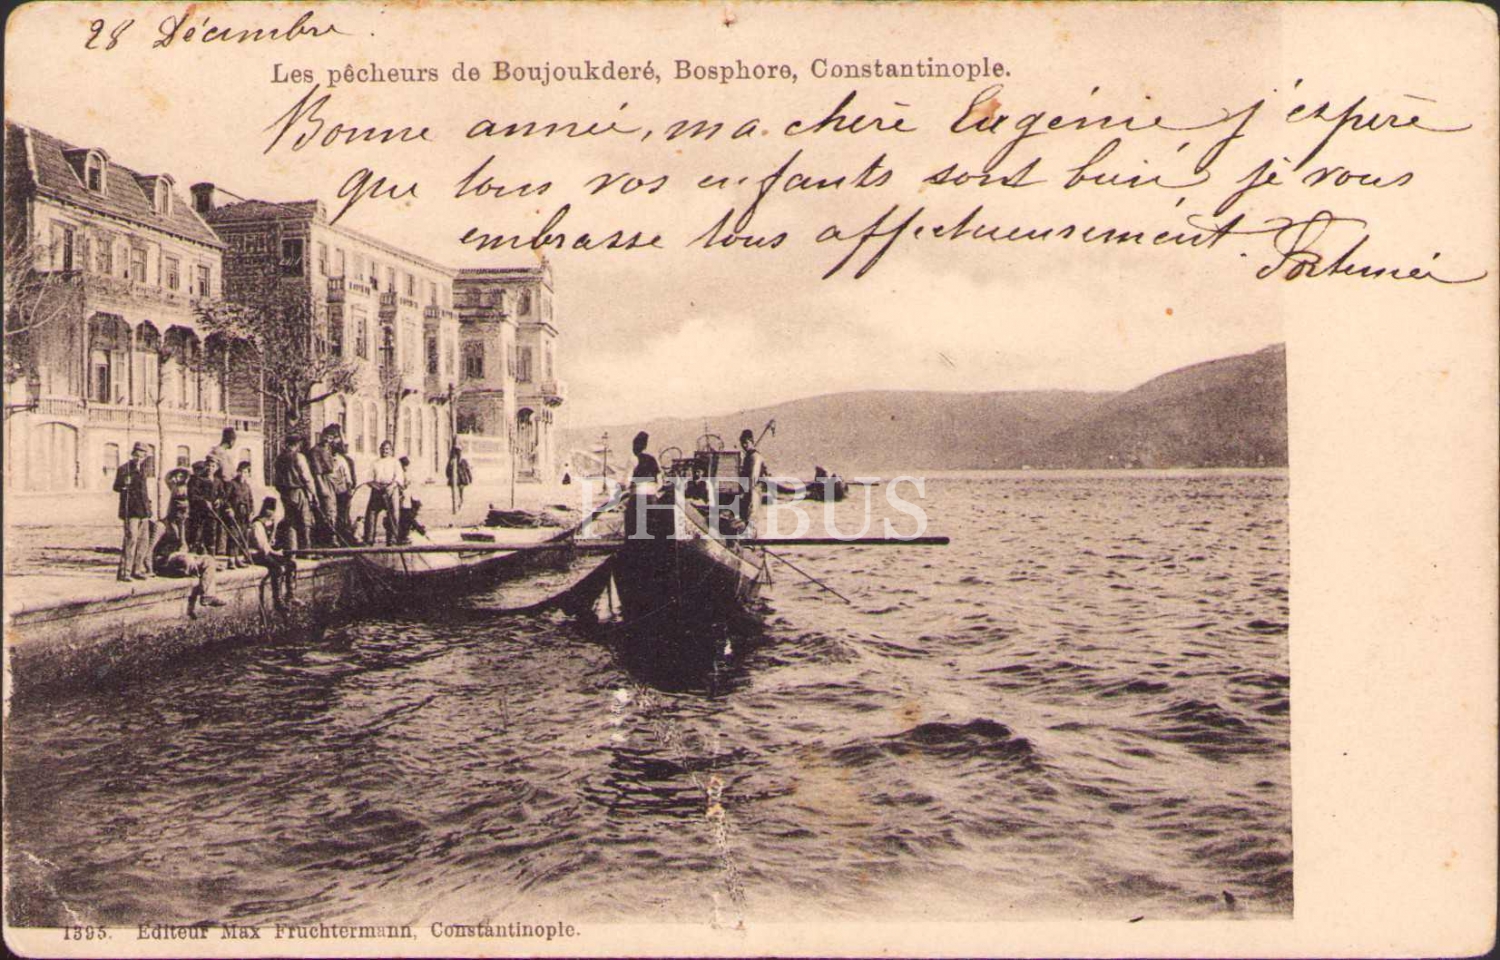 28 Décembre.
Les pêcheurs de Boujoukderé, Bosphore, Constantinople.
Bonne année, ma chère Eugénie j'espère
que tous vos enfants sont bien je vous
embrasse tous affectueusement
Fortunée
PHEBUS
1395. Editeur Max Fruchtermann, Constantinople.